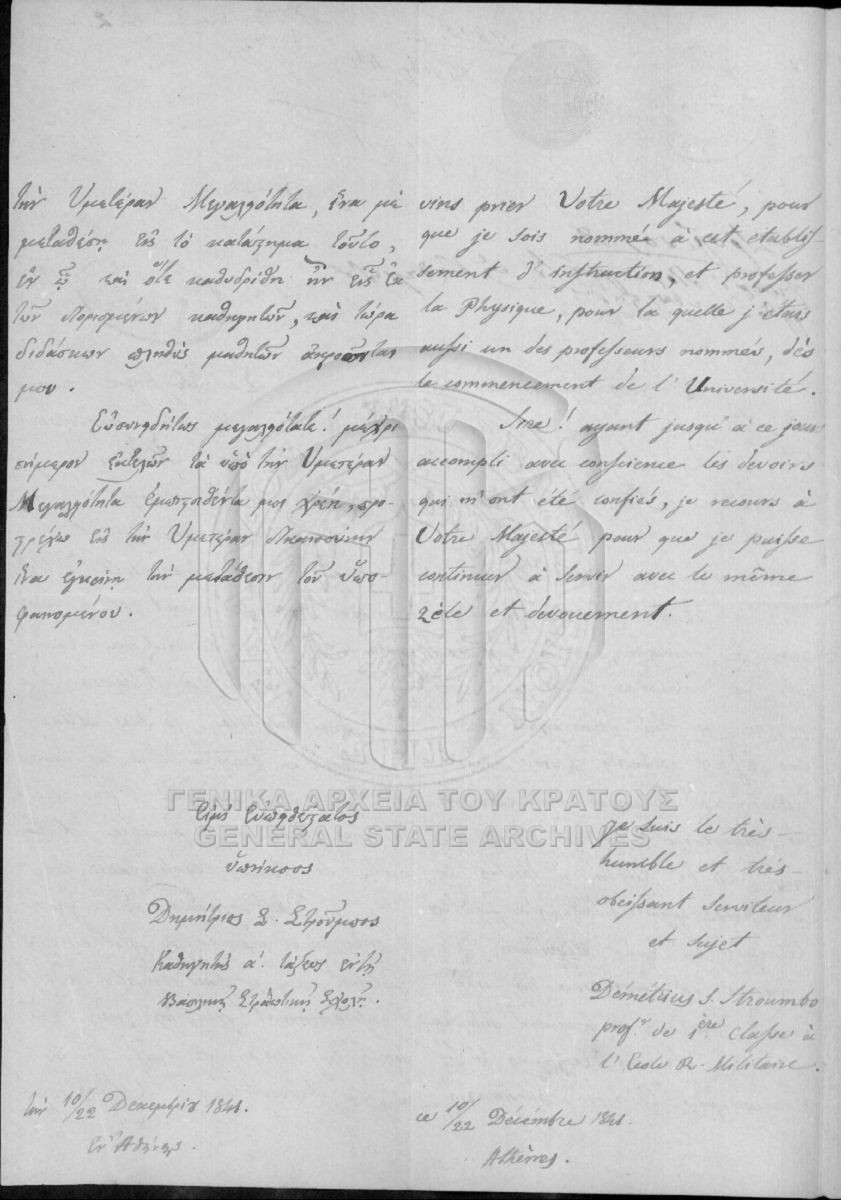 τὴν Ὑμετέραν Μεγαλειότητα, ἵνα μὲ
μεταθέσῃ εἰς τὸ κατάστημα τοῦτο,
ἐν ᾧ καὶ ὅτε καθιδρύθη ἦν εἷς ἐκ
τῶν διορισμένων καθηγητῶν, καὶ τώρα
διδάσκων πληθὺς μαθητῶν ἀκροῶνται
μου.
μεγαλειότατε! μέχρι
σήμερον ἐκτελῶν τὰ ὑπὸ τὴν Ὑμετέραν
Μεγαλειότητα ἐμπιστευθέντα μοι χρέη, προς-
τρέχω εἰς τὴν Ὑμετέραν δικαιοσύνην
ἵνα ἐγκρίνῃ τὴν μετάθεσιν τοῦ ὑπο-
φαινομένου.
Εἰμὶ εὐπειθέστατος
ὑπήκοος
Δημήτριος Σ. Στροῦμπος
Καθηγητὴς α΄. τάξεως ἐν τῇ
Βασιλικῇ Στρατιωτικῇ Σχολῇ.
τὴν 10/22 Δεκεμβρίου 1841.
ἐν Ἀθήναις.
vins prier Votre Majesté, pour
que je sois nommé à cet etablis-
sement d'instruction, et professer
la Physique, pour la quelle j'etais
aussi un des professeurs nommés, dès
le commencement de l'Université.
Sire! ayant jusqu'à ce jour
accompli avec conscience les devoirs
qui m'ont été confiés, je recours à
Votre Majesté pour que je puisse
continuer à servir avec le même
zèle et devouement.
je suis le très-
humble et très-
obéissant serviteur
et sujet
Démétrius S. Stroumbo
profr. de 1ère classe à
l'Ecole R. Militaire.
ce 10/22 Décémbre 1841.
Athènes.
ΓΕΝΙΚΑ ΑΡΧΕΙΑ ΤΟΥ ΚΡΑΤΟΥΣ
GENERAL STATE ARCHIVES